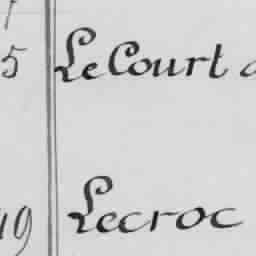 5 Le Court
19 Lecroc